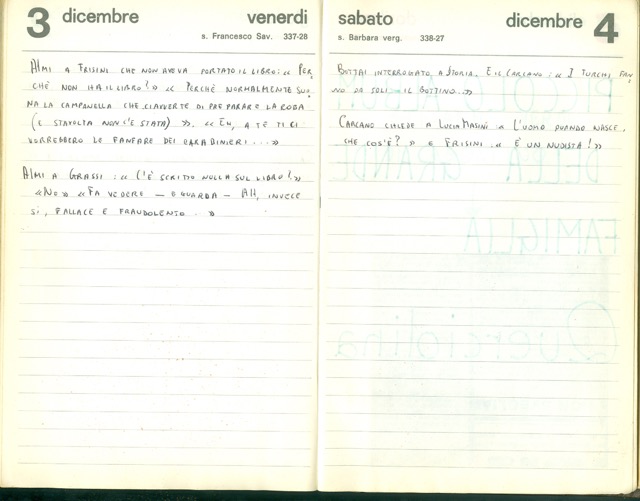 3 dicembre venerdi
s. Francesco Sav. 337-28
ALMI A FRISINI CHE NON AVEVA PORTATO IL LIBRO: « PER,
CHÉ NON HA IL LIBRO? » « PERCHÉ NORMALMENTE SUO,
NA LA CAMPANELLA CHE CI AVVERTE DI PREPARARE LA ROBA
(E STAVOLTA NON C'È STATA) ». « EH, A TE TI CI
VORREBBERO LE FANFARE DEI CARABINIERI .... »
ALMI A GRASSI : « C'È SCRITTO NULLA SUL LIBRO? »
« NO » « FA VEDERE — E GUARDA — AH, INVECE
SÌ, FALLACE E FRAUDOLENTO. »
sabato dicembre 4
s. Barbara verg. 338-27
BOTTAI INTERROGATO A STORIA. E IL CARCANO : « I TURCHI FAN,
NO DA SOLI IL BOTTINO... »
CARCANO CHIEDE A LUCIA MASINI « L'UOMO QUANDO NASCE,
CHE COS'È? » E FRISINI : « È UN NUDISTA! »
PICCOLO
DELLA GRANDE
FAMIGLIA
Querciolina